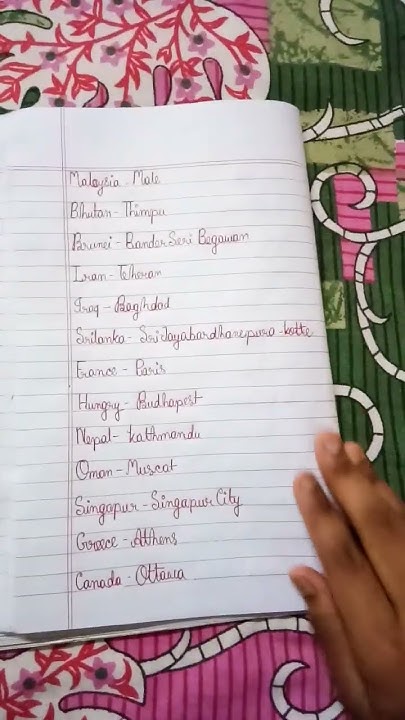 Malaysia - Male
Bhutan - Thimpu
Brunei - Bander Seri Begawan
Iran - Teheran
Iraq - Baghdad
Srilanka - Sri Jayabardhanepura - kotte
France - Paris
Hungry - Budhapest
Nepal - Kathmandu
Oman - Muscat
Singapur - Singapur City
Greece - Athens
Canada - Ottawa